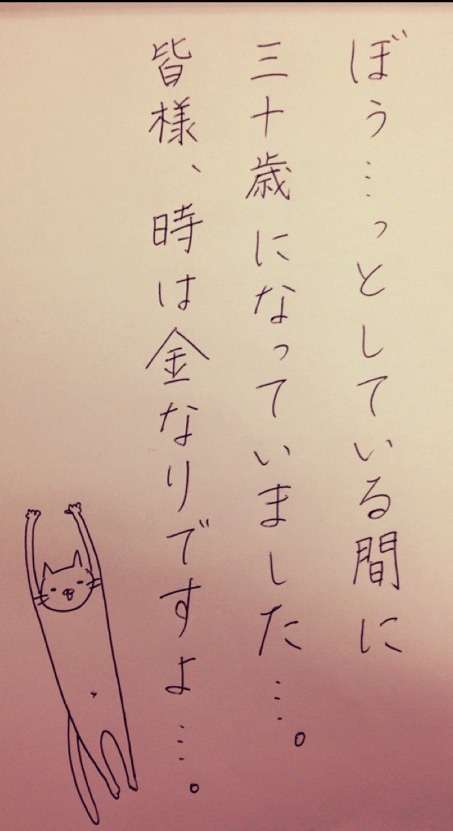 ぼう…っとしている間に
三十歳になっていました…。
皆様、時は金なりですよ…。